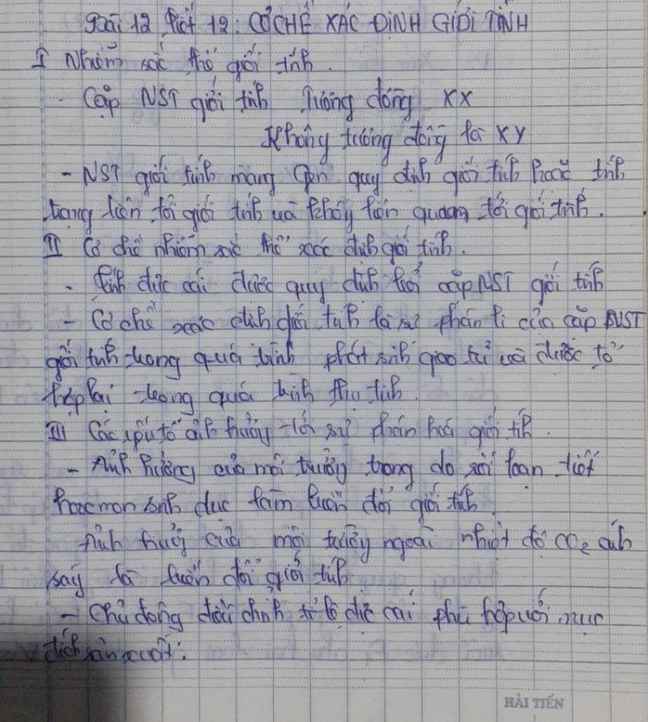 Bài 12 Tiết 12: CƠ CHẾ XÁC ĐỊNH GIỚI TÍNH
I Nhiễm sắc thể giới tính.
- Cặp NST giới tính Tương đồng XX
Không tương đồng là XY
- NST giới tính mang gen quy định giới tính hoặc tính
trạng liên tới giới tính và không liên quan tới giới tính.
II Cơ chế nhiễm sắc thể xác định giới tính.
- tính đực cái được quy định bởi cặp NST giới tính
- Cơ chế xác định giới tính là sự phân li của cặp NST
giới tính trong quá trình phát sinh giao tử và được tổ
hợp lại trong quá trình thụ tinh.
III Các yếu tố ảnh hưởng tới sự phân hoá giới tính.
- Ảnh hưởng của môi trường trong do rối loạn tiết
hoocmon sinh dục làm biến đổi giới tính
Ảnh hưởng của môi trường ngoài nhiệt độ CO2 ánh
ság là biến đổi giới tính
- Chủ động điều chỉnh tỉ lệ đực cái phù hợp với mục
đích sản xuất:
HẢI TIẾN